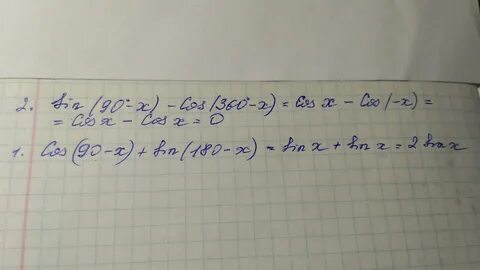 2. sin(90°-x) - cos(360°-x) = cos x - cos(-x) =
= cos x - cos x = 0
1. cos(90-x) + sin(180-x) = sin x + sin x = 2 sin x